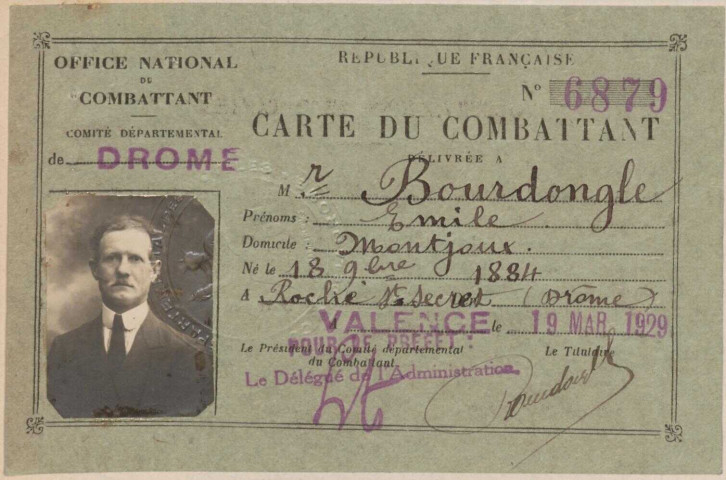 OFFICE NATIONAL
DU
COMBATTANT
COMITÉ DÉPARTEMENTAL
de DROME
REPUBLIQUE FRANÇAISE
N° 6879
CARTE DU COMBATTANT
DÉLIVRÉE A
M r Bourdongle
Prénoms : Emile
Domicile : Montjoux.
Né le 18 9bre 1884
A Roche St Secret (Drôme)
VALENCE le 19 MAR 1929
POUR LE PREFET :
Le Président du Comité départemental
du Combattant
Le Titulaire
Le Délégué de l'Administration
Bourdongle